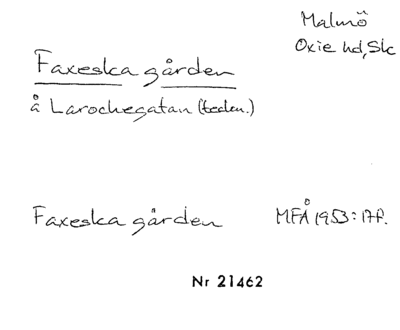 Malmö
Oxie hd, Sk
Faxeska gården
å Larochegatan (beden.)
Faxeska gården MFÅ 1953: 17f.
Nr 21462